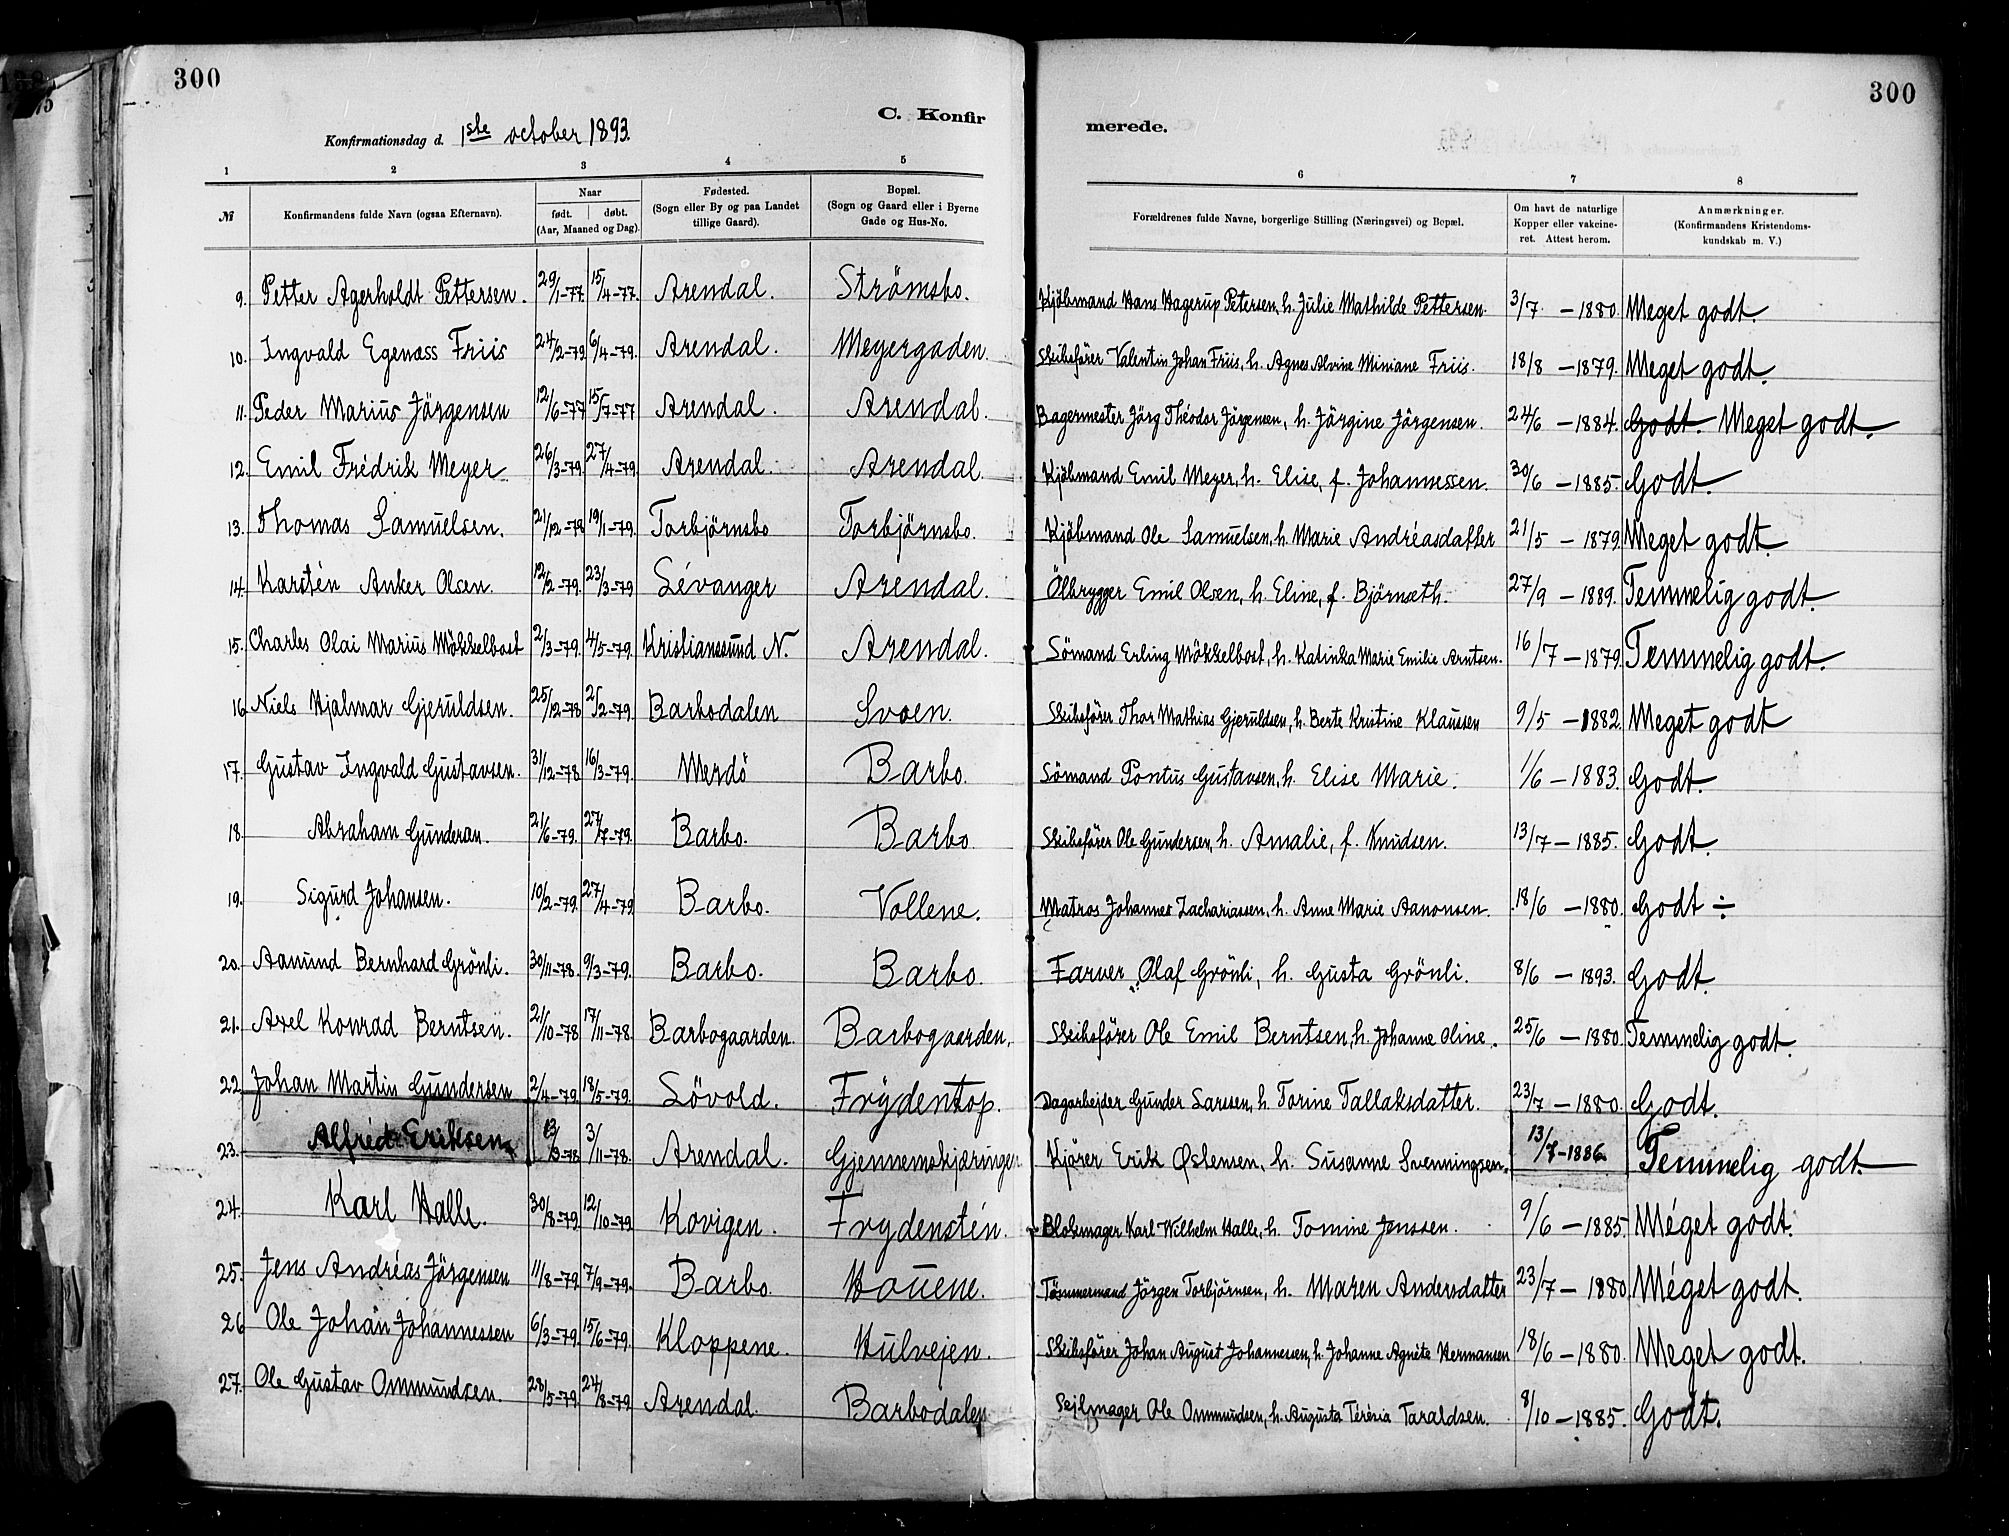 300
300
C. Konfirmerede.
Konfirmationsdag d. 1ste october 1893.
1 2 3 4 5 6 7 8
№ Konfirmandens fulde Navn (ogsaa Efternavn). Naar født. døbt. (Aar, Maaned og Dag). Fødested. (Sogn eller By og paa Landet tillige Gaard). Bopæl. (Sogn og Gaard eller i Byerne Gade og Hus-No. Forældrenes fulde Navne, borgerlige Stilling (Næringsvei) og Bopæl. Om havt de naturlige Kopper eller vakcineret. Attest herom. Anmærkninger. (Konfirmandens Kristendomskundskab m. V.)
9. Petter Agerholdt Pettersen. 29/1-77. 15/4-77. Arendal. Strömsbo. Kjöbmand Hans Hagerup Petersen, h. Julie Mathilde Pettersen. 3/7 - 1880. Meget godt.
10. Ingvald Egenæss Friis 24/2-79. 6/4-79. Arendal. Meyergaden. Skibsförer Valentin Johan Friis, h. Agnes Alvine Miniane Friis. 18/8 - 1879. Meget godt.
11. Peder Marius Jörgensen 12/6-77 15/7-77 Arendal. Arendal. Bagermester Jörg Théodor Jörgensen, h. Jörgine Jörgensen. 24/6 - 1884. Godt. Meget godt.
12. Emil Frédrik Meyer 26/3-79. 27/4-79. Arendal. Arendal. Kjöbmand Emil Meyer, h. Elise, f. Johannessen. 30/6 - 1885. Godt.
13. Thomas Samuelsen. 21/12-78 19/1-79. Torbjörnsbo Torbjörnsbo. Kjöbmand Ole Samuelsen, h. Marie Andréasdatter 21/5 - 1879. Meget godt.
14. Karstén Anker Olsen. 12/2-79. 23/3-79 Lévanger Arendal. Ölbrygger Emil Olsen, h. Eline, f. Björnseth. 27/9 - 1889. Temmelig godt.
15. Charles Olai Marius Mökkelbost 2/3-79. 4/5-79. Kristianssund N. Arendal. Sömand Erling Mökkelbost, h. Katinka Marie Emilie Arntsen. 16/7 - 1879. Temmelig godt.
16. Niels Hjalmar Gjeruldsen. 25/12-78 2/2-79. Barbodalen Svoen. Skibsförer Thor Mathias Gjeruldsen, h. Berte Kristine Klaussen 9/5 - 1882. Meget godt
17. Gustav Ingvald Gustavsen. 31/12-78. 16/3-79. Merdö Barbo. Sömand Pontus Gustavsen, h. Elise Marie. 1/6 - 1883. Godt.
18. Abraham Gundersn. 21/6-79. 27/7-79. Barbo. Barbo. Skibsförer Ole Gundersen, h. Amalie, f. Knudsen. 13/7 - 1885. Godt.
19. Sigurd Johansen. 10/2-79. 27/4-79 Barbo. Vollene. Matros Johannes Zachariassen, h. Anne Marie Aanonsen. 18/6 - 1880. Godt ÷
20. Aanund Bernhard Grönli. 30/11-78. 9/3-79. Barbo. Barbo. Farver Olaf Grönli, h. Gusta Grönli. 8/6 - 1893. Godt.
21. Axel Konrad Berntsen. 21/10-78 17/11-78. Barbogaarden. Barbogaarden. Skibsförer Ole Emil Berntsen, h. Johanne Oline. 25/6 - 1880. Temmelig godt.
22. Johan Martin Gundersen 2/4-79. 18/5-79. Lövold. Frydentop. Dagarbejder Gunder Larssen, h. Torine Tallaksdatter. 23/7 - 1880. Godt.
23. Alfréd Eriksen. 13/3-78 3/11-78. Arendal. Gjennemskjæringen Kjörer Erik Østensen, h. Susanne Svenningsen. 13/7 - 1886. Temmelig godt.
24. Karl Halle. 30/8-79. 12/10-79 Kovigen. Frydenstén. Blokmager Karl Wilhelm Halle, h. Tomine Jenssen. 9/6 - 1885. Méget godt.
25. Jens Andréas Jörgensen 11/8-79. 7/9-79. Barbo. Houene. Tömmermand Jörgen Torbjörnsen, h. Maren Andersdatter 23/7 - 1880. Méget godt.
26. Ole Johan Johannessen 6/3-79. 15/6-79. Kloppene. Hulvejen. Skibsförer Johan August Johannessen, h. Johanne Agnéte Hermansen 18/6 - 1880. Meget godt.
27. Ole Gustav Ommundsen. 28/5-79. 24/8-79 Arendal. Barbodalen Sejlmager Ole Ommundsen, h. Augusta Térésia Taraldsen. 8/10 - 1885. Godt.